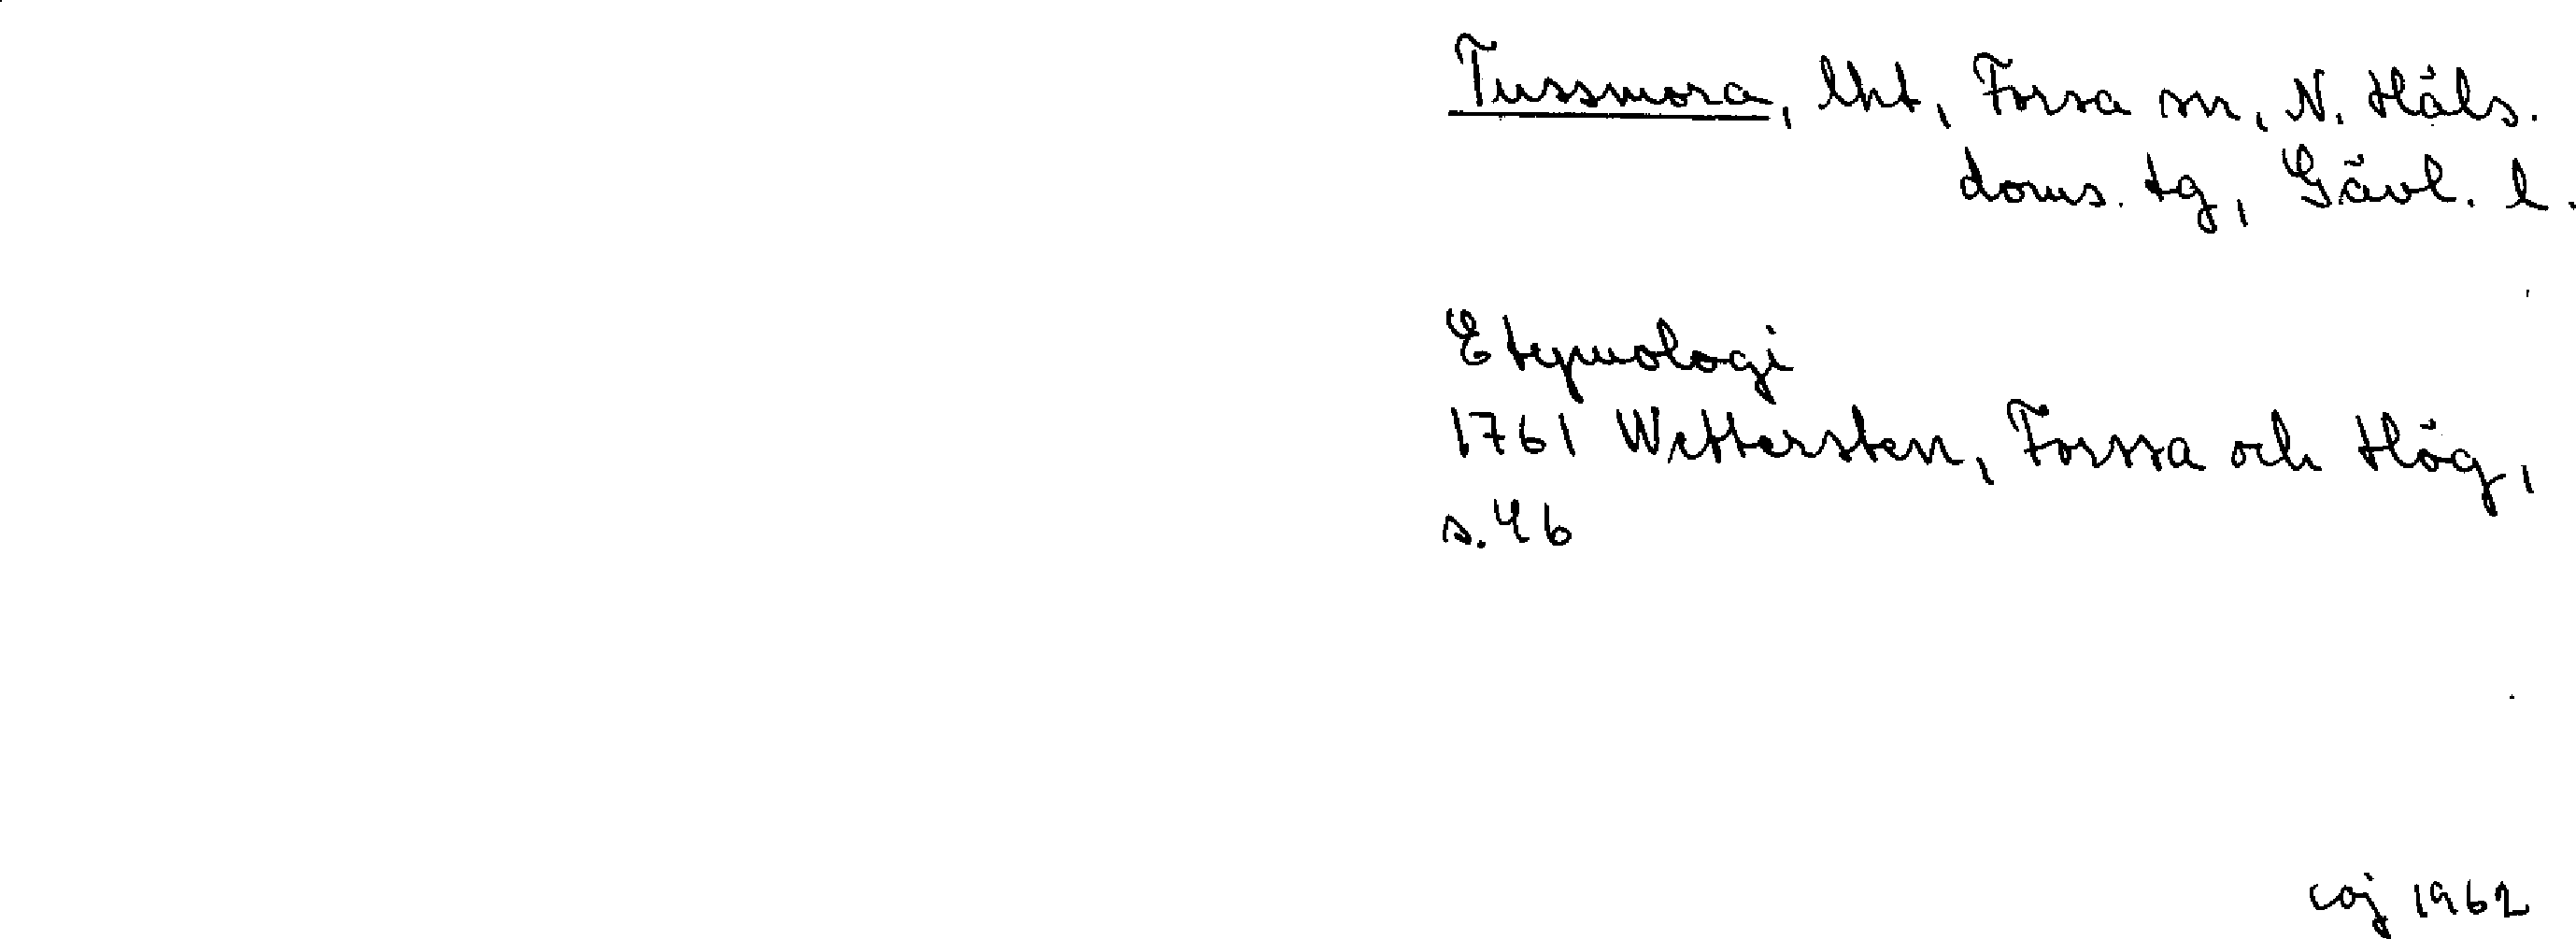 Tussmora, lht, Forsa sn, N. Häls.
doms. tg, Gävl. l.
Etymologi
1761 Wettersten, Forssa och Hög,
s. 46
coj 1962